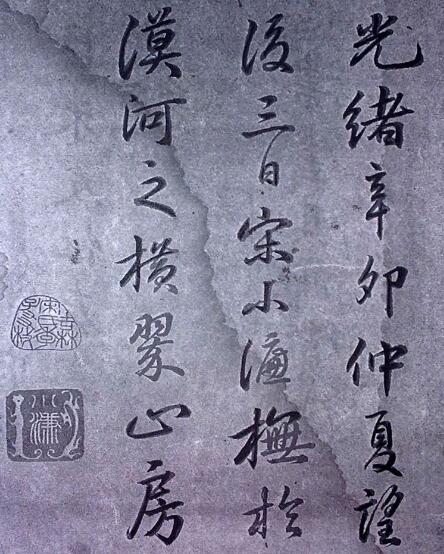 光緒辛卯仲夏望
後三日宋小濂橅於
漠河之橫翠山房